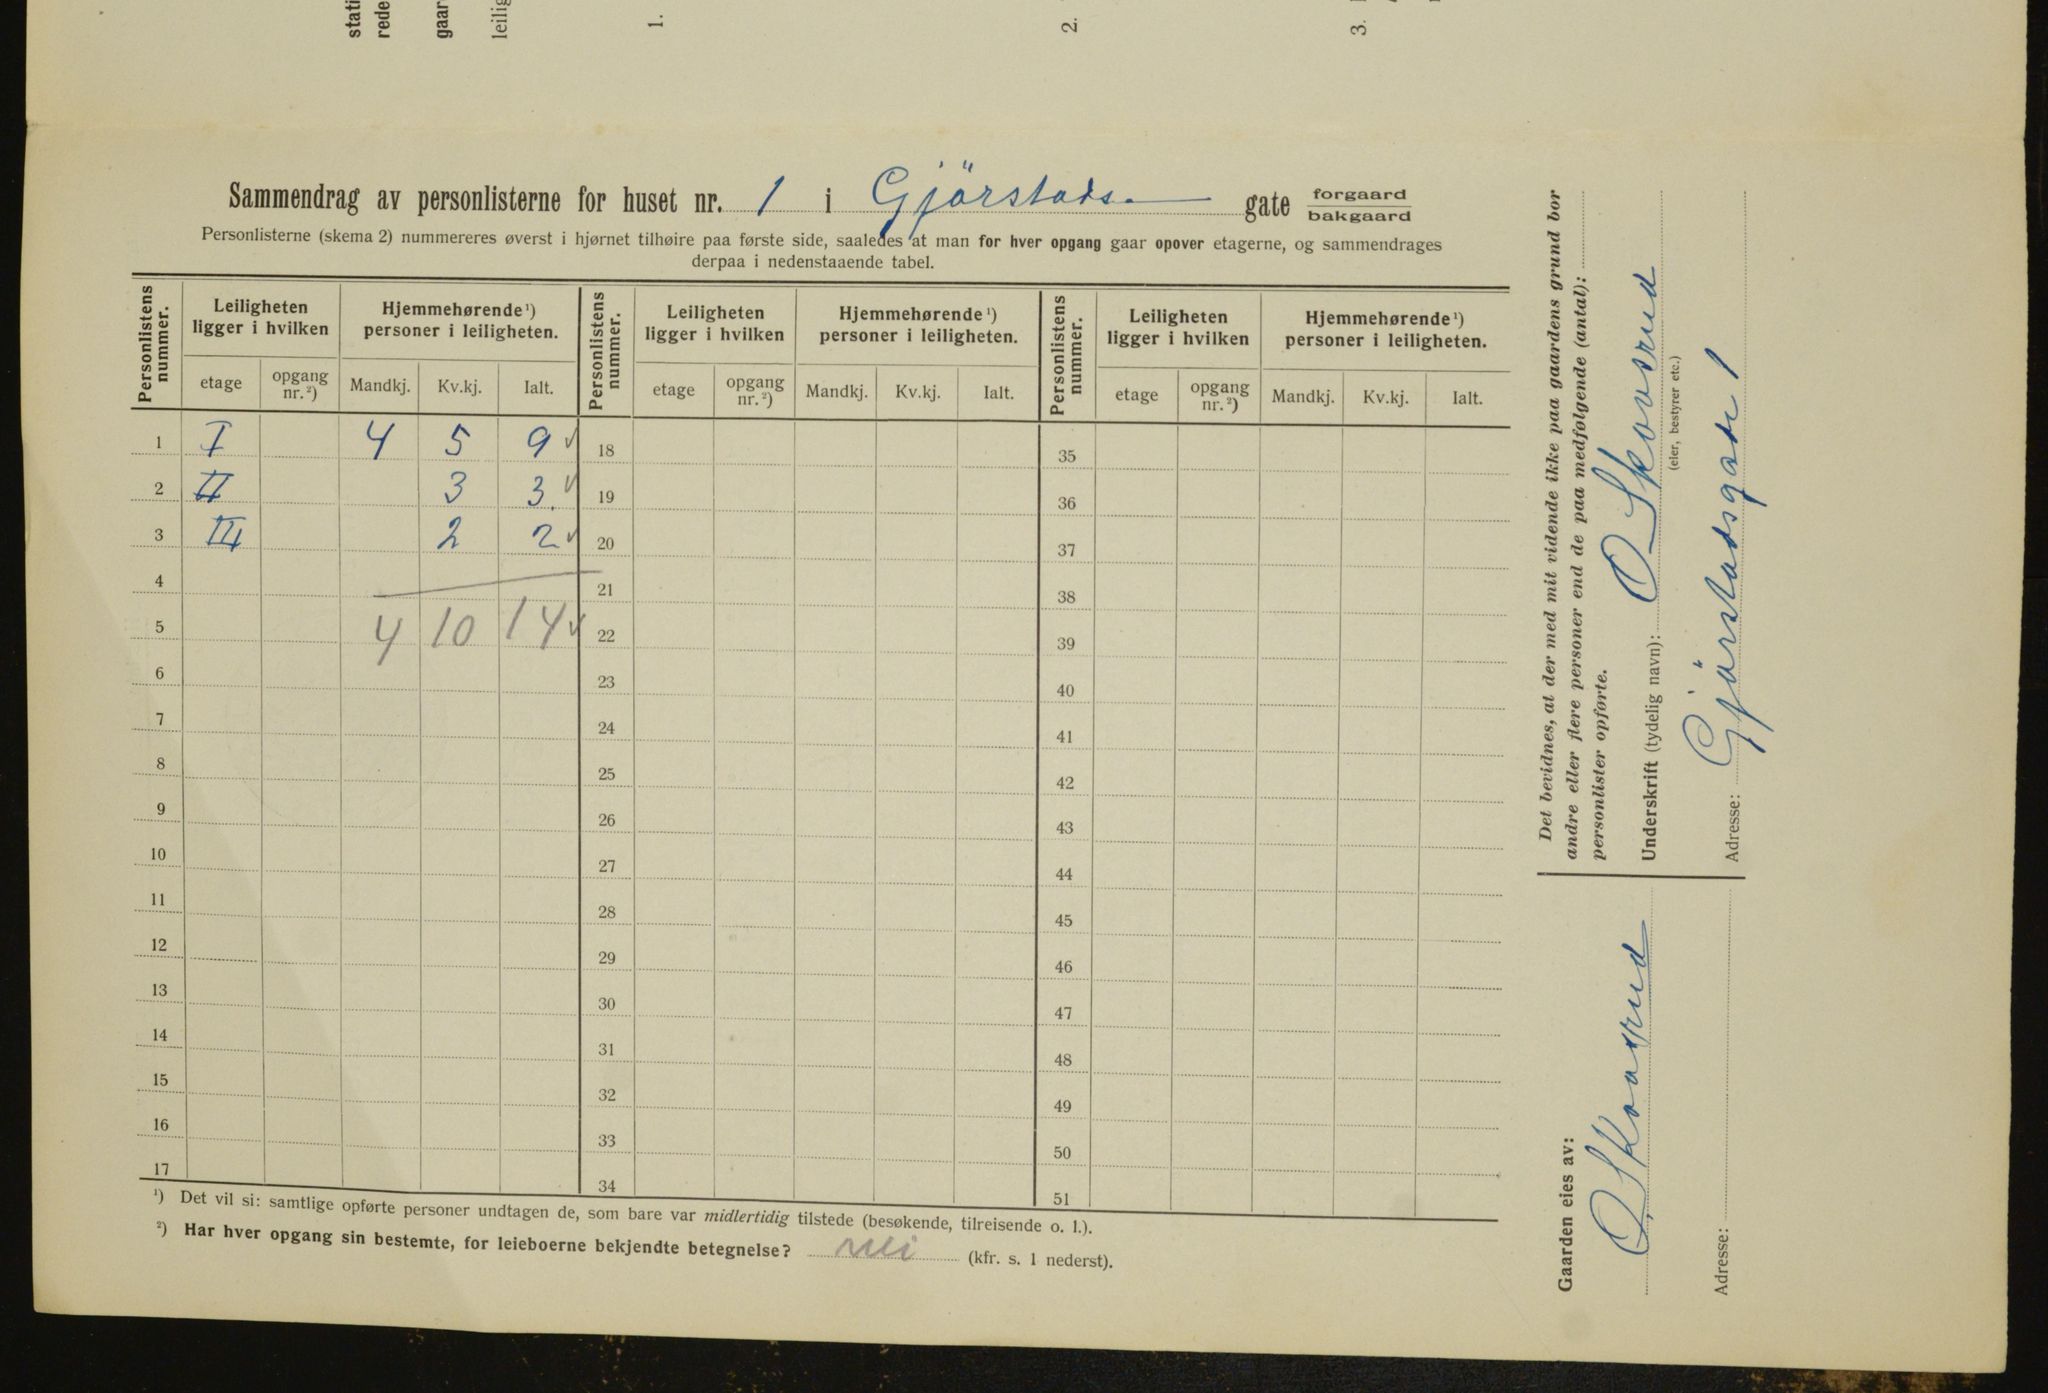 stati
rede
gaar
leilig
1.
2.
3.
Sammendrag av personlisterne for huset nr. 1 i Gjörstads. gate forgaard
bakgaard
Personlisterne (skema 2) nummereres øverst i hjørnet tilhøire paa første side, saaledes at man for hver opgang gaar opover etagerne, og sammendrages
derpaa i nedenstaaende tabel.
Personlistens nummer. Leiligheten ligger i hvilken Hjemmehørende ¹) personer i leiligheten. Personlistens nummer. Leiligheten ligger i hvilken Hjemmehørende ¹) personer i leiligheten. Personlistens nummer. Leiligheten ligger i hvilken Hjemmehørende ¹) personer i leiligheten.
etage opgang nr. ²) Mandkj. Kv.kj. Ialt. etage opgang nr. ²) Mandkj. Kv.kj. Ialt. etage opgang nr. ²) Mandkj. Kv.kj. Ialt.
1 I 4 5 9 ✓ 18 35
2 II 3 3. ✓ 19 36
3 III 2 2 ✓ 20 37
4 21 38
5 4 10 14 ✓ 22 39
6 23 40
7 24 41
8 25 42
9 26 43
10 27 44
11 28 45
12 29 46
13 30 47
14 31 48
15 32 49
16 33 50
17 34 51
¹) Det vil si: samtlige opførte personer undtagen de, som bare var midlertidig tilstede (besøkende, tilreisende o. l.).
²) Har hver opgang sin bestemte, for leieboerne bekjendte betegnelse? nei (kfr. s. 1 nederst).
Det bevidnes, at der med mit vidende ikke paa gaardens grund bor
andre eller flere personer end de paa medfølgende (antal):
personlister opførte.
Underskrift (tydelig navn): O Skovsrud
(eier, bestyrer etc.)
Adresse: Gjörstadsgate 1
Gaarden eies av:
O, Skovsrud
Adresse: